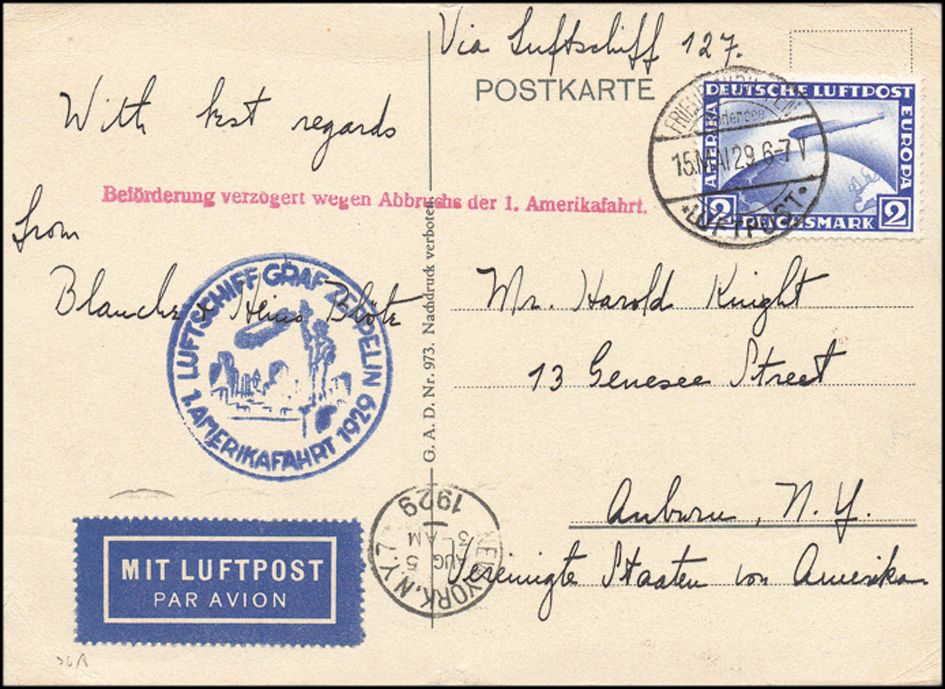 Via Luftschiff 127.
POSTKARTE
With best regards
from
Blanche & Heins Blöte
Beförderung verzögert wegen Abbruchs der 1. Amerikafahrt.
DEUTSCHE LUFTPOST
AMERIKA
EUROPA
2 REICHSMARK 2
15.MAI 29 6-7 V
* LUFTPOST *
LUFTSCHIFF GRAF ZEPPELIN
1. AMERIKAFAHRT 1929
G. A. D. Nr. 973. Nachdruck verboten.
Mr. Harold Knight
13 Genesee Street
Auburn, N. Y.
Vereinigte Staaten von Amerika
NEW YORK, N.Y. 7
AUG 5
3- AM
1929
MIT LUFTPOST
PAR AVION